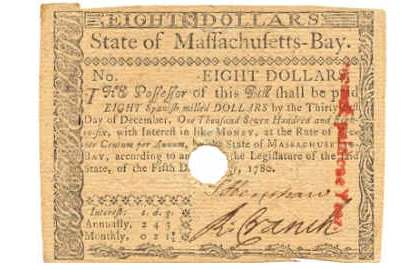 EIGHT DOLLARS
State of Massachusetts-Bay.
No. EIGHT DOLLARS
THE Possessor of this Bill shall be paid
EIGHT Spanish milled DOLLARS by the Thirty
Day of December, One Thousand Seven Hundred and
with Interest in like MONEY, at the Rate of
per Centum per Annum, by the State of MASSACHUSETTS-
BAY, according to an of the Legislature of the said
State, of the Fifth Day of 1780.
Interest: s. d. q.
Annually, 2 4 3
Monthly, 0 2 1
R Cranch